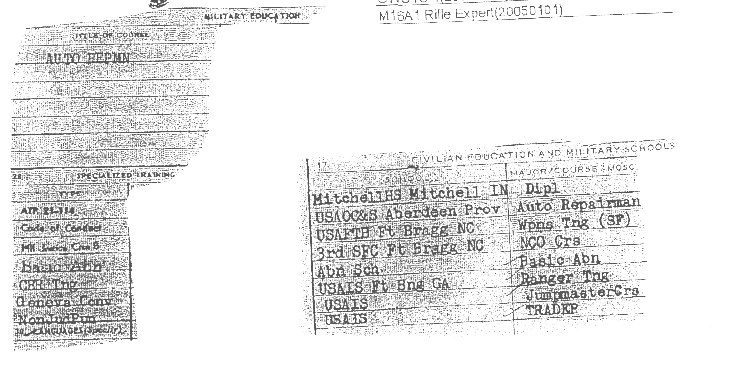 MILITARY EDUCATION
TITLE OF COURSE
AUTO REPMN
M16A1 Rifle Expert(20050101)
SPECIALIZED TRAINING
TYPE
Code of Conduct
Basic Abn
CBR Tng
Geneva Conv
NonJudPun
17. CIVILIAN EDUCATION AND MILITARY SCHOOLS
MAJOR/COURSE/MOSC
MitchellHS Mitchell IN Dipl
USAOC&S Aberdeen Prov Auto Repairman
USAFTH Ft Bragg NC Wpns Tng (SF)
3rd SFC Ft Bragg NC NCO Crs
Abn Sch Basic Abn
USAIS Ft Bng GA Ranger Tng
USAIS JumpmasterCrs
USAIS TRADER